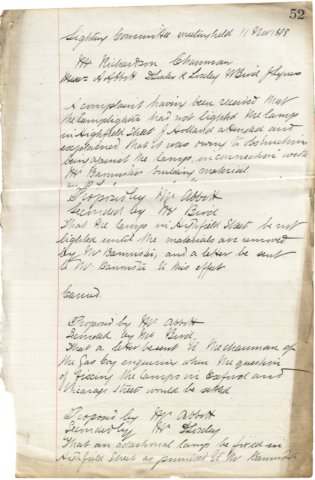 52
Lighting Committee meeting held 11 Nov 1898
Mr Richardson Chairman
Messrs H Abbott Loxley W Bird J Lynes
A complaint having been received that
the lamplighter had not lighted the lamps
in Highfield Street J Holland attended and
explained that it was owing to obstruction
being against the lamps, in connection with
Mr Bannister building material
Proposed by Mr Abbott
Seconded by Mr Bird
That the lamps in Highfield Street be not
lighted until the materials are removed
by Mr Bannister, and a letter be sent
to Mr Bannister to this effect
Carried
Proposed by Mr Abbott
Seconded by Mr Bird
That a letter be sent to the chairman of
the Gas Coy enquiring when the question
of fixing the lamps in Oxford and
Vicarage Street would be settled
Proposed by Mr Abbott
Seconded by Mr Loxley
That an additional lamp be fixed in
Highfield Street as promised to Mr Bannister